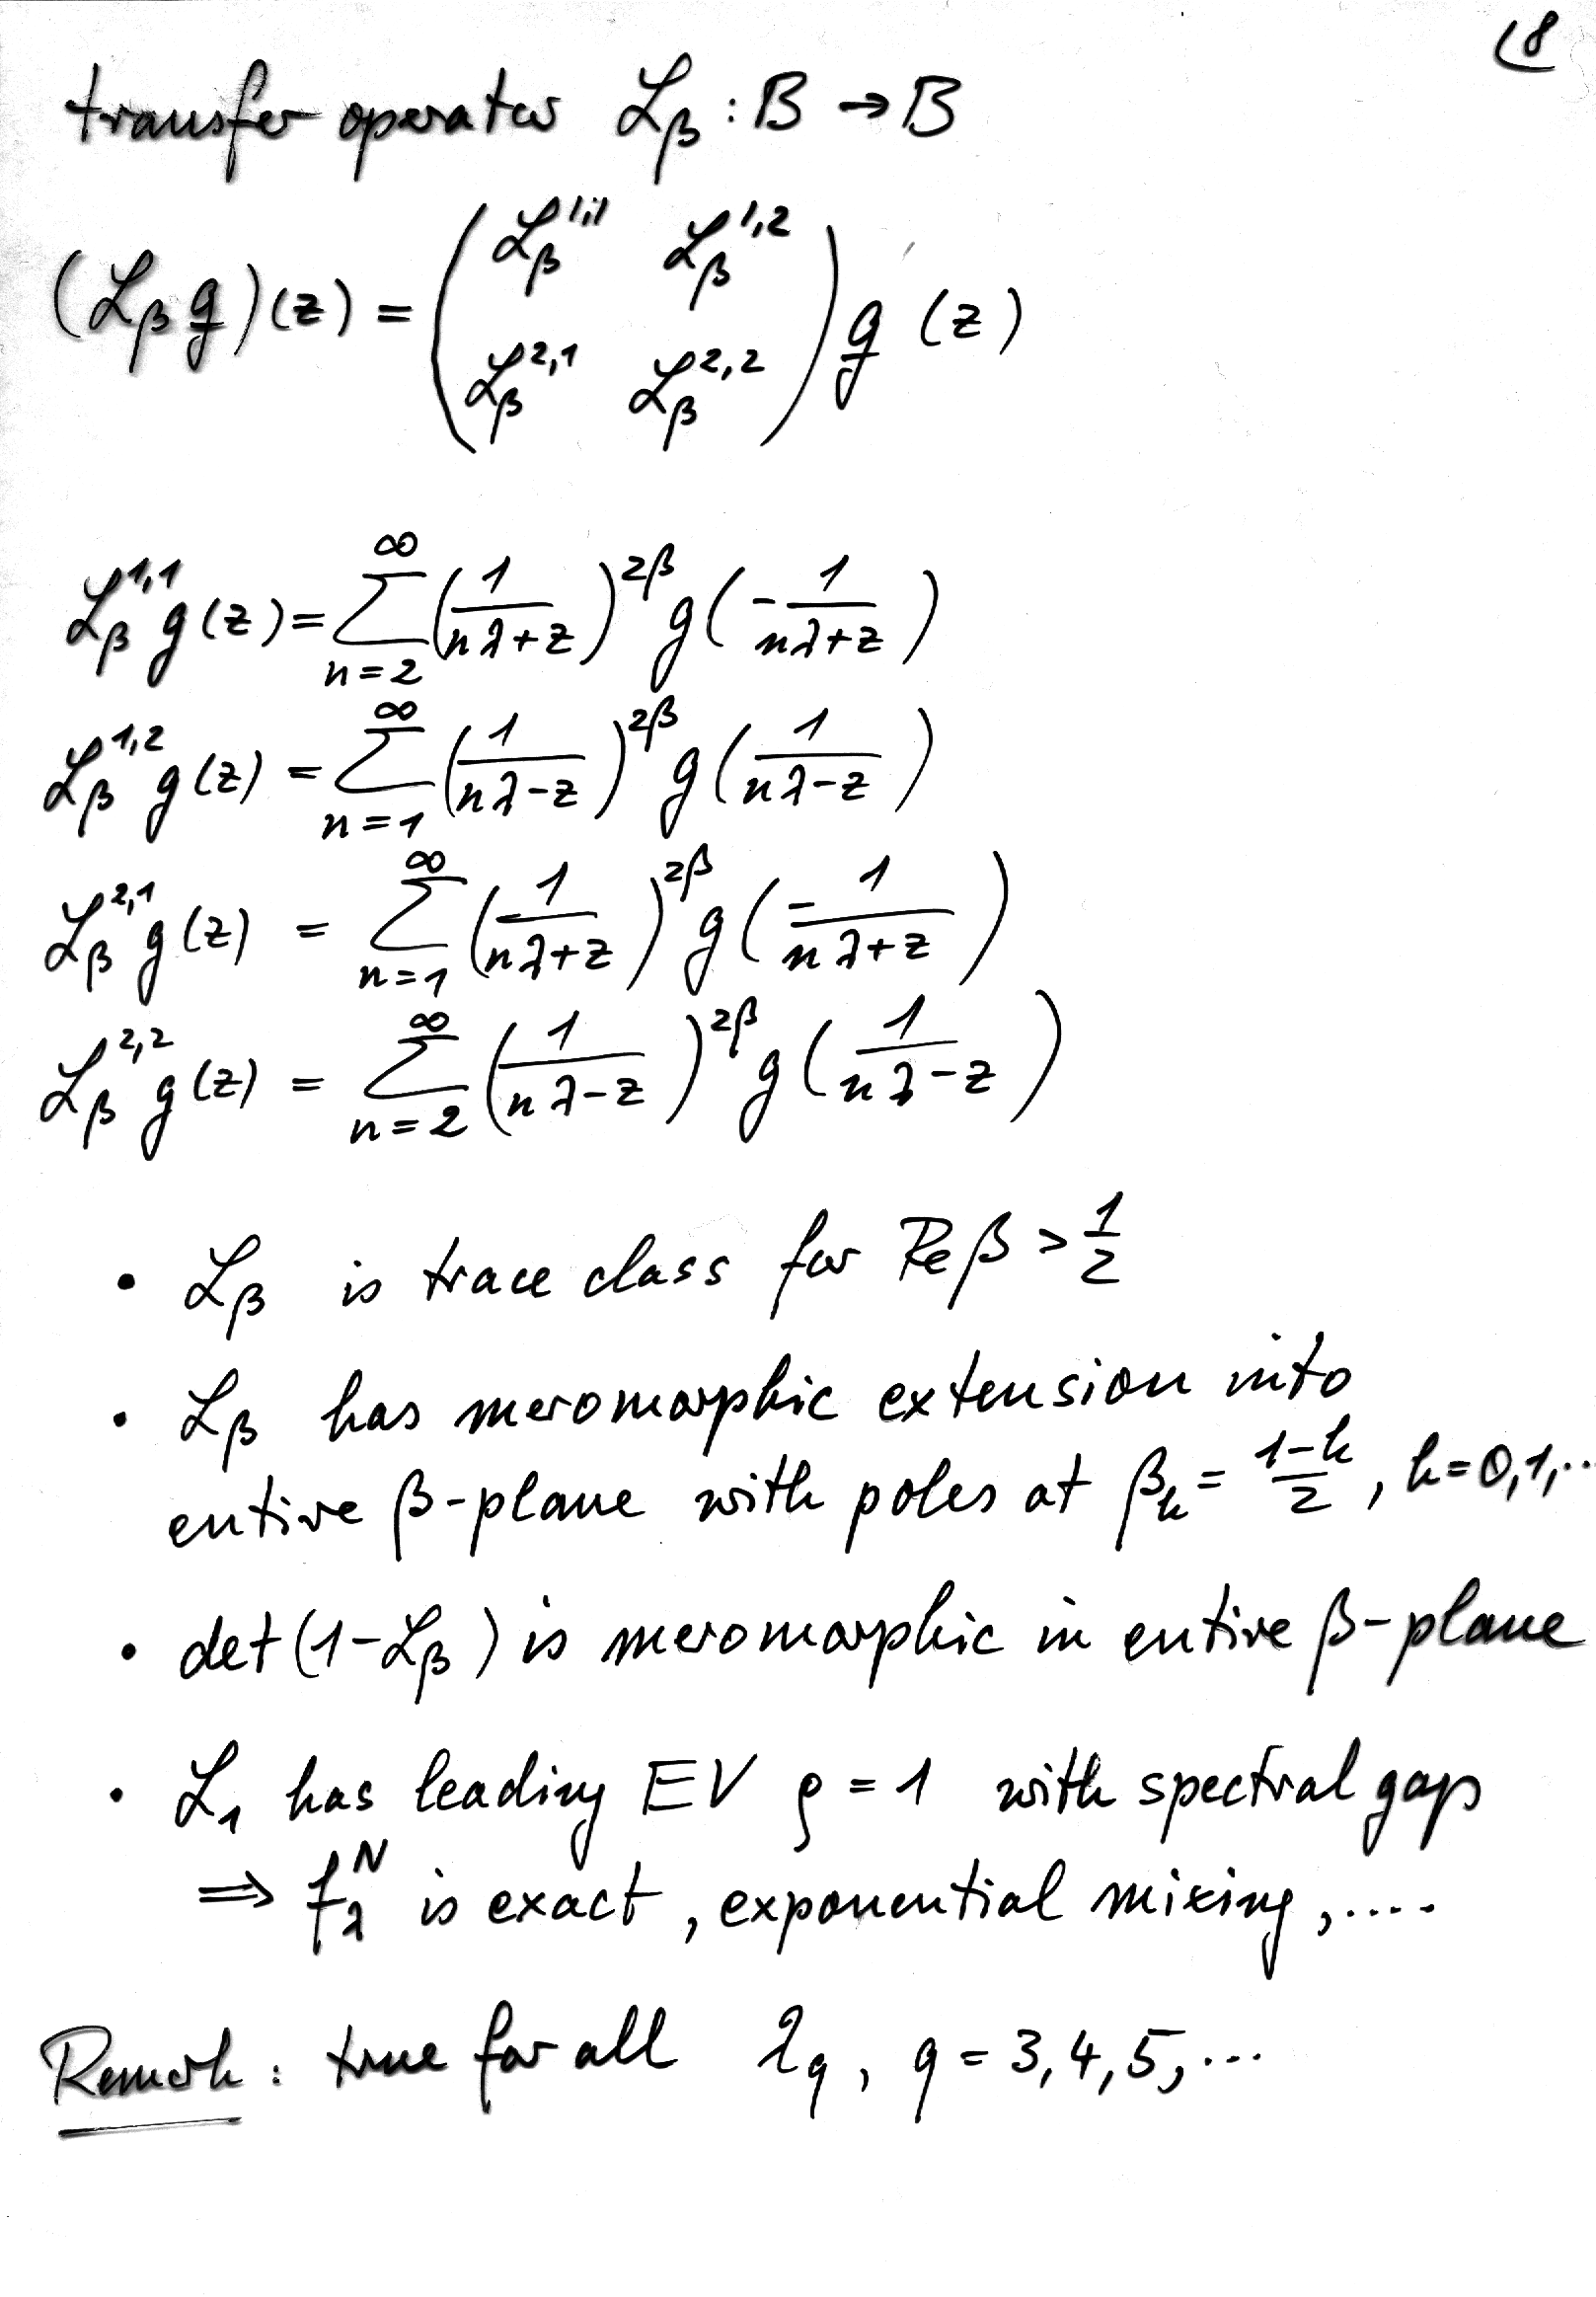 (8
transfer operator ℒ_β : B → B
(ℒ_β g̲)(z) = ( ℒ_β^{1,1} ℒ_β^{1,2} ; ℒ_β^{2,1} ℒ_β^{2,2} ) g̲ (z)
ℒ_β^{1,1} g(z) = ∑_{n=2}^{∞} (1/(nλ+z))^{2β} g(-1/(nλ+z))
ℒ_β^{1,2} g(z) = ∑_{n=1}^{∞} (1/(nλ-z))^{2β} g(1/(nλ-z))
ℒ_β^{2,1} g(z) = ∑_{n=1}^{∞} (1/(nλ+z))^{2β} g(-1/(nλ+z))
ℒ_β^{2,2} g(z) = ∑_{n=2}^{∞} (1/(nλ-z))^{2β} g(1/(nλ-z))
• ℒ_β is trace class for Re β > 1/2
• ℒ_β has meromorphic extension into
entire β-plane with poles at β_k = (1-k)/2, k=0,1,..
• det(1-ℒ_β) is meromorphic in entire β-plane
• ℒ_1 has leading EV ρ = 1 with spectral gap
⇒ f_λ^N is exact, exponential mixing,....
Remark: true for all λ_q, q = 3,4,5,...